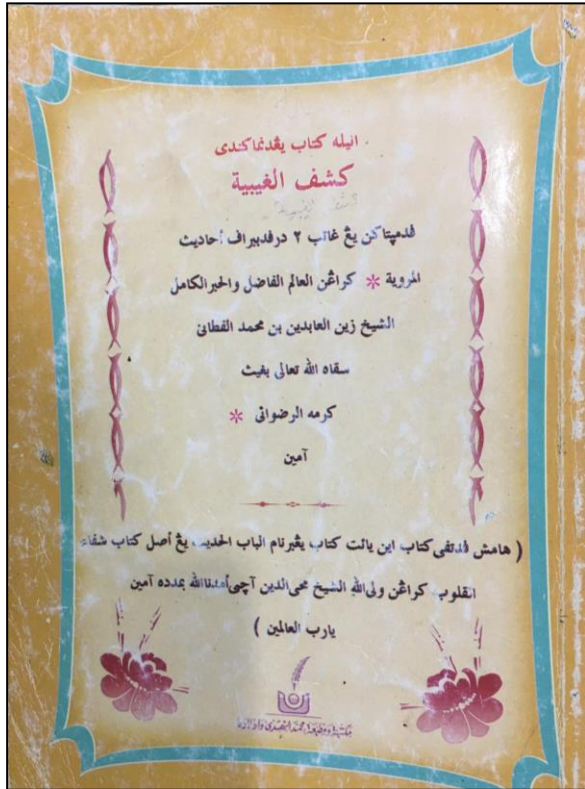 انيله كتاب يڠدنماكندى
كشف الغيبية
فدمپتاكن يڠ غائب ٢ درفدبيراف أحاديث
المروية * كراڠن العالم الفاضل والحبرالكامل
الشيخ زين العابدين بن محمد الفطانى
سقاه الله تعالى بغيث
كرمه الرضوانى *
آمين
( هامش فدتفى كتاب اين يائت كتاب يڠبرنام الباب الحديث يڠ أصل كتاب شفاء
القلوب كراڠن ولى الله الشيخ محى الدين آچى أمدنا الله بمدده آمين
يارب العالمين )